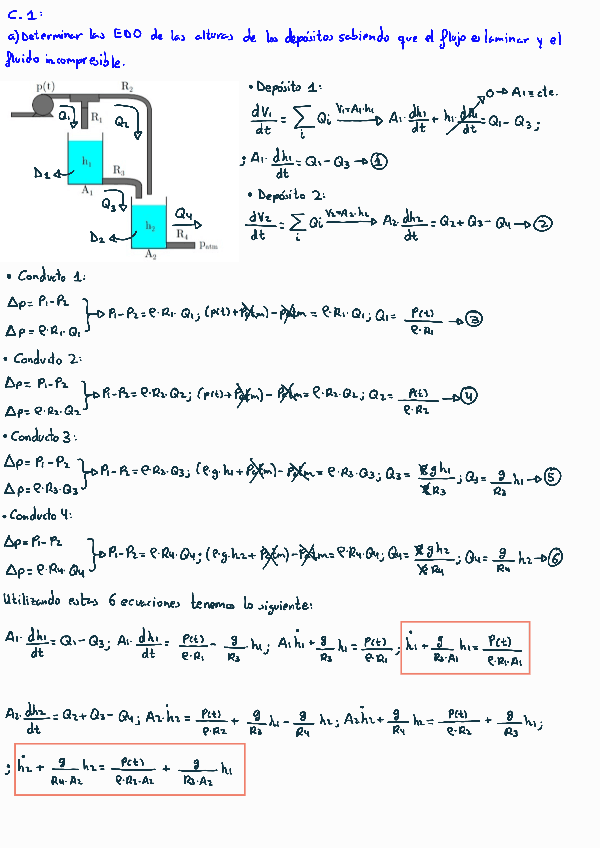 C.1:
a) Determinar las EDO de las alturas de los depósitos sabiendo que el flujo es laminar y el
fluido incompresible.
p(t) R₂
Q₁ R₁ Q₂
D₁ h₁ R₃
A₁ Q₃
D₂ h₂ Q₄
R₄ pₐₜₘ
A₂
• Depósito 1:
0 → A₁ = cte.
dV₁/dt = Σᵢ Qᵢ V₁=A₁·h₁ → A₁· dh₁/dt + h₁· dA₁/dt = Q₁ - Q₃ ;
; A₁· dh₁/dt = Q₁ - Q₃ → ①
• Depósito 2:
dV₂/dt = Σᵢ Qᵢ V₂=A₂·h₂ → A₂· dh₂/dt = Q₂ + Q₃ - Q₄ → ②
• Conducto 1:
Δp = P₁ - P₂
Δp = ρ·R₁·Q₁
→ P₁ - P₂ = ρ·R₁·Q₁ ; (p(t) + Patm) - Patm = ρ·R₁·Q₁ ; Q₁ = P(t)/ρ·R₁ → ③
• Conducto 2:
Δp = P₁ - P₂
Δp = ρ·R₂·Q₂
→ P₁ - P₂ = ρ·R₂·Q₂ ; (p(t) + Patm) - Patm = ρ·R₂·Q₂ ; Q₂ = P(t)/ρ·R₂ → ④
• Conducto 3:
Δp = P₁ - P₂
Δp = ρ·R₃·Q₃
→ P₁ - P₂ = ρ·R₃·Q₃ ; (ρ·g·h₁ + Patm) - Patm = ρ·R₃·Q₃ ; Q₃ = ρgh₁/ρR₃ ; Q₃ = g/R₃ h₁ → ⑤
• Conducto 4:
Δp = P₁ - P₂
Δp = ρ·R₄·Q₄
→ P₁ - P₂ = ρ·R₄·Q₄ ; (ρ·g·h₂ + Patm) - Patm = ρ·R₄·Q₄ ; Q₄ = ρgh₂/ρR₄ ; Q₄ = g/R₄ h₂ → ⑥
Utilizando estas 6 ecuaciones tenemos lo siguiente:
A₁· dh₁/dt = Q₁ - Q₃ ; A₁· dh₁/dt = P(t)/ρ·R₁ - g/R₃ h₁ ; A₁ḣ₁ + g/R₃ h₁ = P(t)/ρ·R₁ ; ḣ₁ + g/R₃·A₁ h₁ = P(t)/ρ·R₁·A₁
A₂· dh₂/dt = Q₂ + Q₃ - Q₄ ; A₂·ḣ₂ = P(t)/ρ·R₂ + g/R₃ h₁ - g/R₄ h₂ ; A₂ḣ₂ + g/R₄ h₂ = P(t)/ρ·R₂ + g/R₃ h₁ ;
; ḣ₂ + g/R₄·A₂ h₂ = P(t)/ρ·R₂·A₂ + g/R₃·A₂ h₁